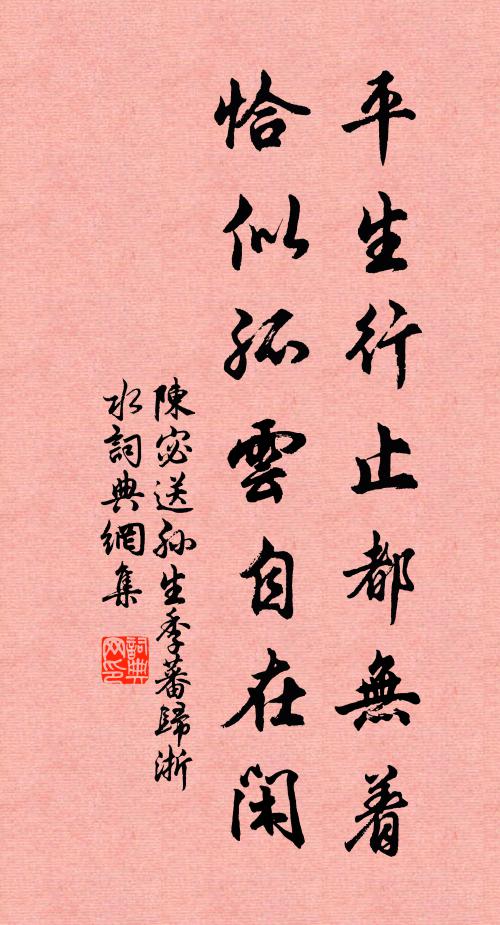 平生行止都無着
恰似孤雲自在閑
陳宓送孫生季蕃歸浙
水詞典網集
詞典網印